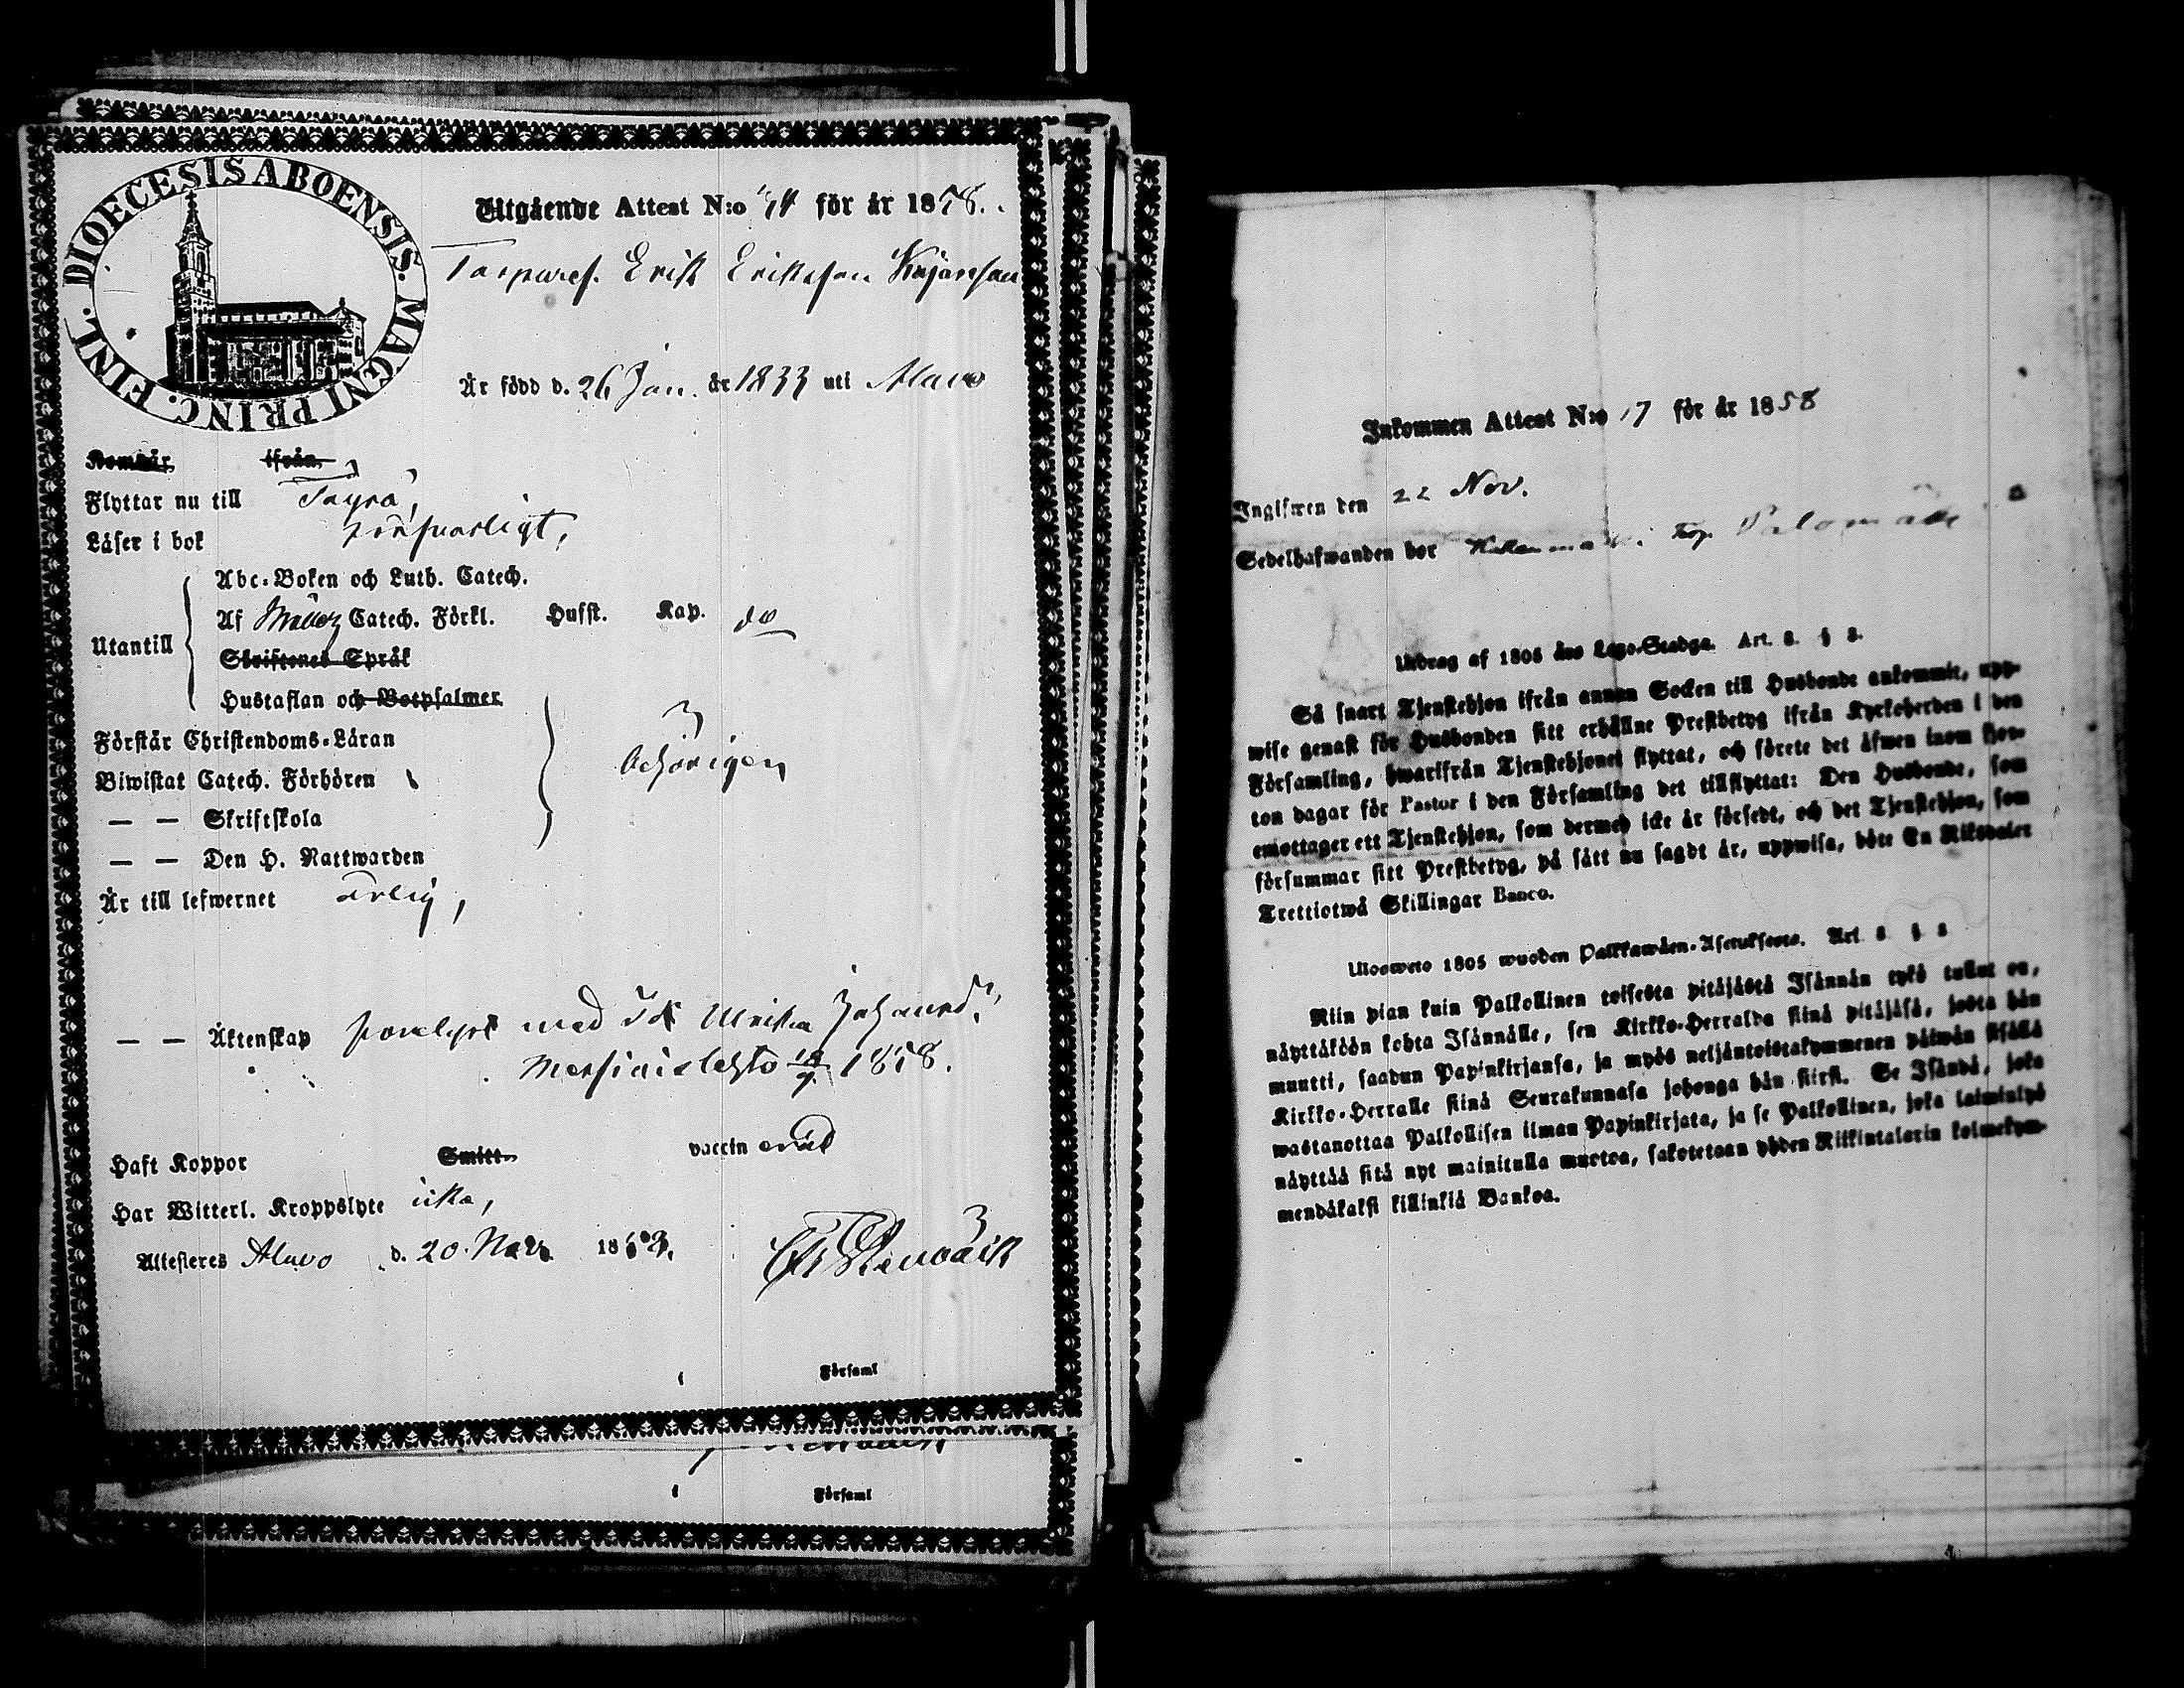 DIOECESIS ABOENSIS. MAGNI PRINC. FINL.
Utgående Attest N:o 44 för år 1858.
Erik Eriksson
Är född d. 26 Jan. år 1833 uti Alavo
Kom är ifrån
Flyttar nu till Töysä,
Läser i bok försvarligt,
Utantill
Abc-Boken och Luth. Catech.
Af Möllerz Catech. Förkl. Hufst. Kap. do
Skriftenes Språk
Hustaflan och Botpsalmer
Förstår Christendoms-Läran
Biwistat Catech. Förhören
behörigen
— — Skriftskola
— — Den H. Nattwarden
Är till lefwernet ärlig,
— — Äktenskap förelyst med Ulrika Johansd:r
1858.
Haft Koppor Smitt- vaccin erad
Har Witterl. Kroppslyte icke,
Attesteres Alavo d. 20. Nov. 1858.
Församl
Församl
Inkommen Attest N:o 17 för år 1858
Inglfwen den 22 Nov.
Sedelhafwanden bor Palomäki
Utdrag af 1805 års Lego-Stadga. Art. 8. § 8.
Så snart Tjenstehjon ifrån annan Socken till Husbonde ankommit, upp-
wise genast för Husbonden sitt erhållne Prestbetyg ifrån Kyrkoherden i den
Församling, hwarifrån Tjenstehjonet flyttat, och förete det äfwen inom fjor-
ton dagar för Pastor i den Församling det tillflyttat: Den Husbonde, som
emottager ett Tjenstehjon, som dermed icke är försedt, och det Tjenstehjon, som
försummar sitt Prestbetyg, på sätt nu sagdt är, uppwisa, böte En Riksdaler
Trettiotwå Skillingar Banco.
Ulosweto 1805 wuoden Palkkawäen-Asetuksesta. Art. 8 § 8
Niin pian kuin Palkollinen toisesta pitäjästä Isännän tykö tullut on,
näyttäköön kohta Isännälle, sen Kirkko-Herralda siinä pitäjäsä, josta hän
muutti, saadun Papinkirjansa, ja myös neljäntoistakymmenen päiwän sisällä
Kirkko-Herralle siinä Seurakunnasa johonga hän siirsi. Se Isändä, joka
wastanottaa Palkollisen ilman Papinkirjata, ja se Palkollinen, joka laiminlyö
näyttää sitä nyt mainitulla muotoa, sakotetaan yhden Riikintalarin kolmekym-
mendäkaksi killinkiä Bankoa.